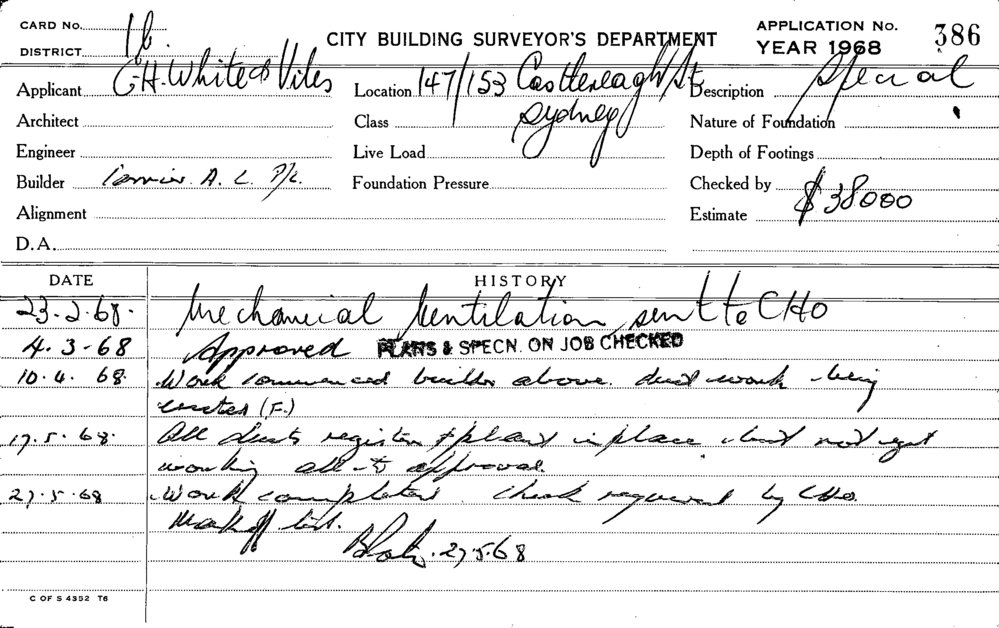 CARD No. 16
DISTRICT
CITY BUILDING SURVEYOR'S DEPARTMENT
APPLICATION No. 386
YEAR 1968
Applicant White & Viles
Location 147/153 Castlereagh St
Sydney
Description Special
Architect
Class
Nature of Foundation
Engineer
Live Load
Depth of Footings
Builder A. C. P/L.
Foundation Pressure
Checked by
Alignment
Estimate $38000
D.A.
DATE HISTORY
23.2.68. Mechanical Ventilation sent to CHO
4.3-68 Approved PLANS & SPECN. ON JOB CHECKED
10.4.68 Work commenced builder above. duct work being
erected (F.)
17.5.68. All ducts register & plant in place but not yet
working all to approval.
27.5.68 Work completed. Check required by CHO.
Mark off list.
27.5.68
C OF S 4352 T6